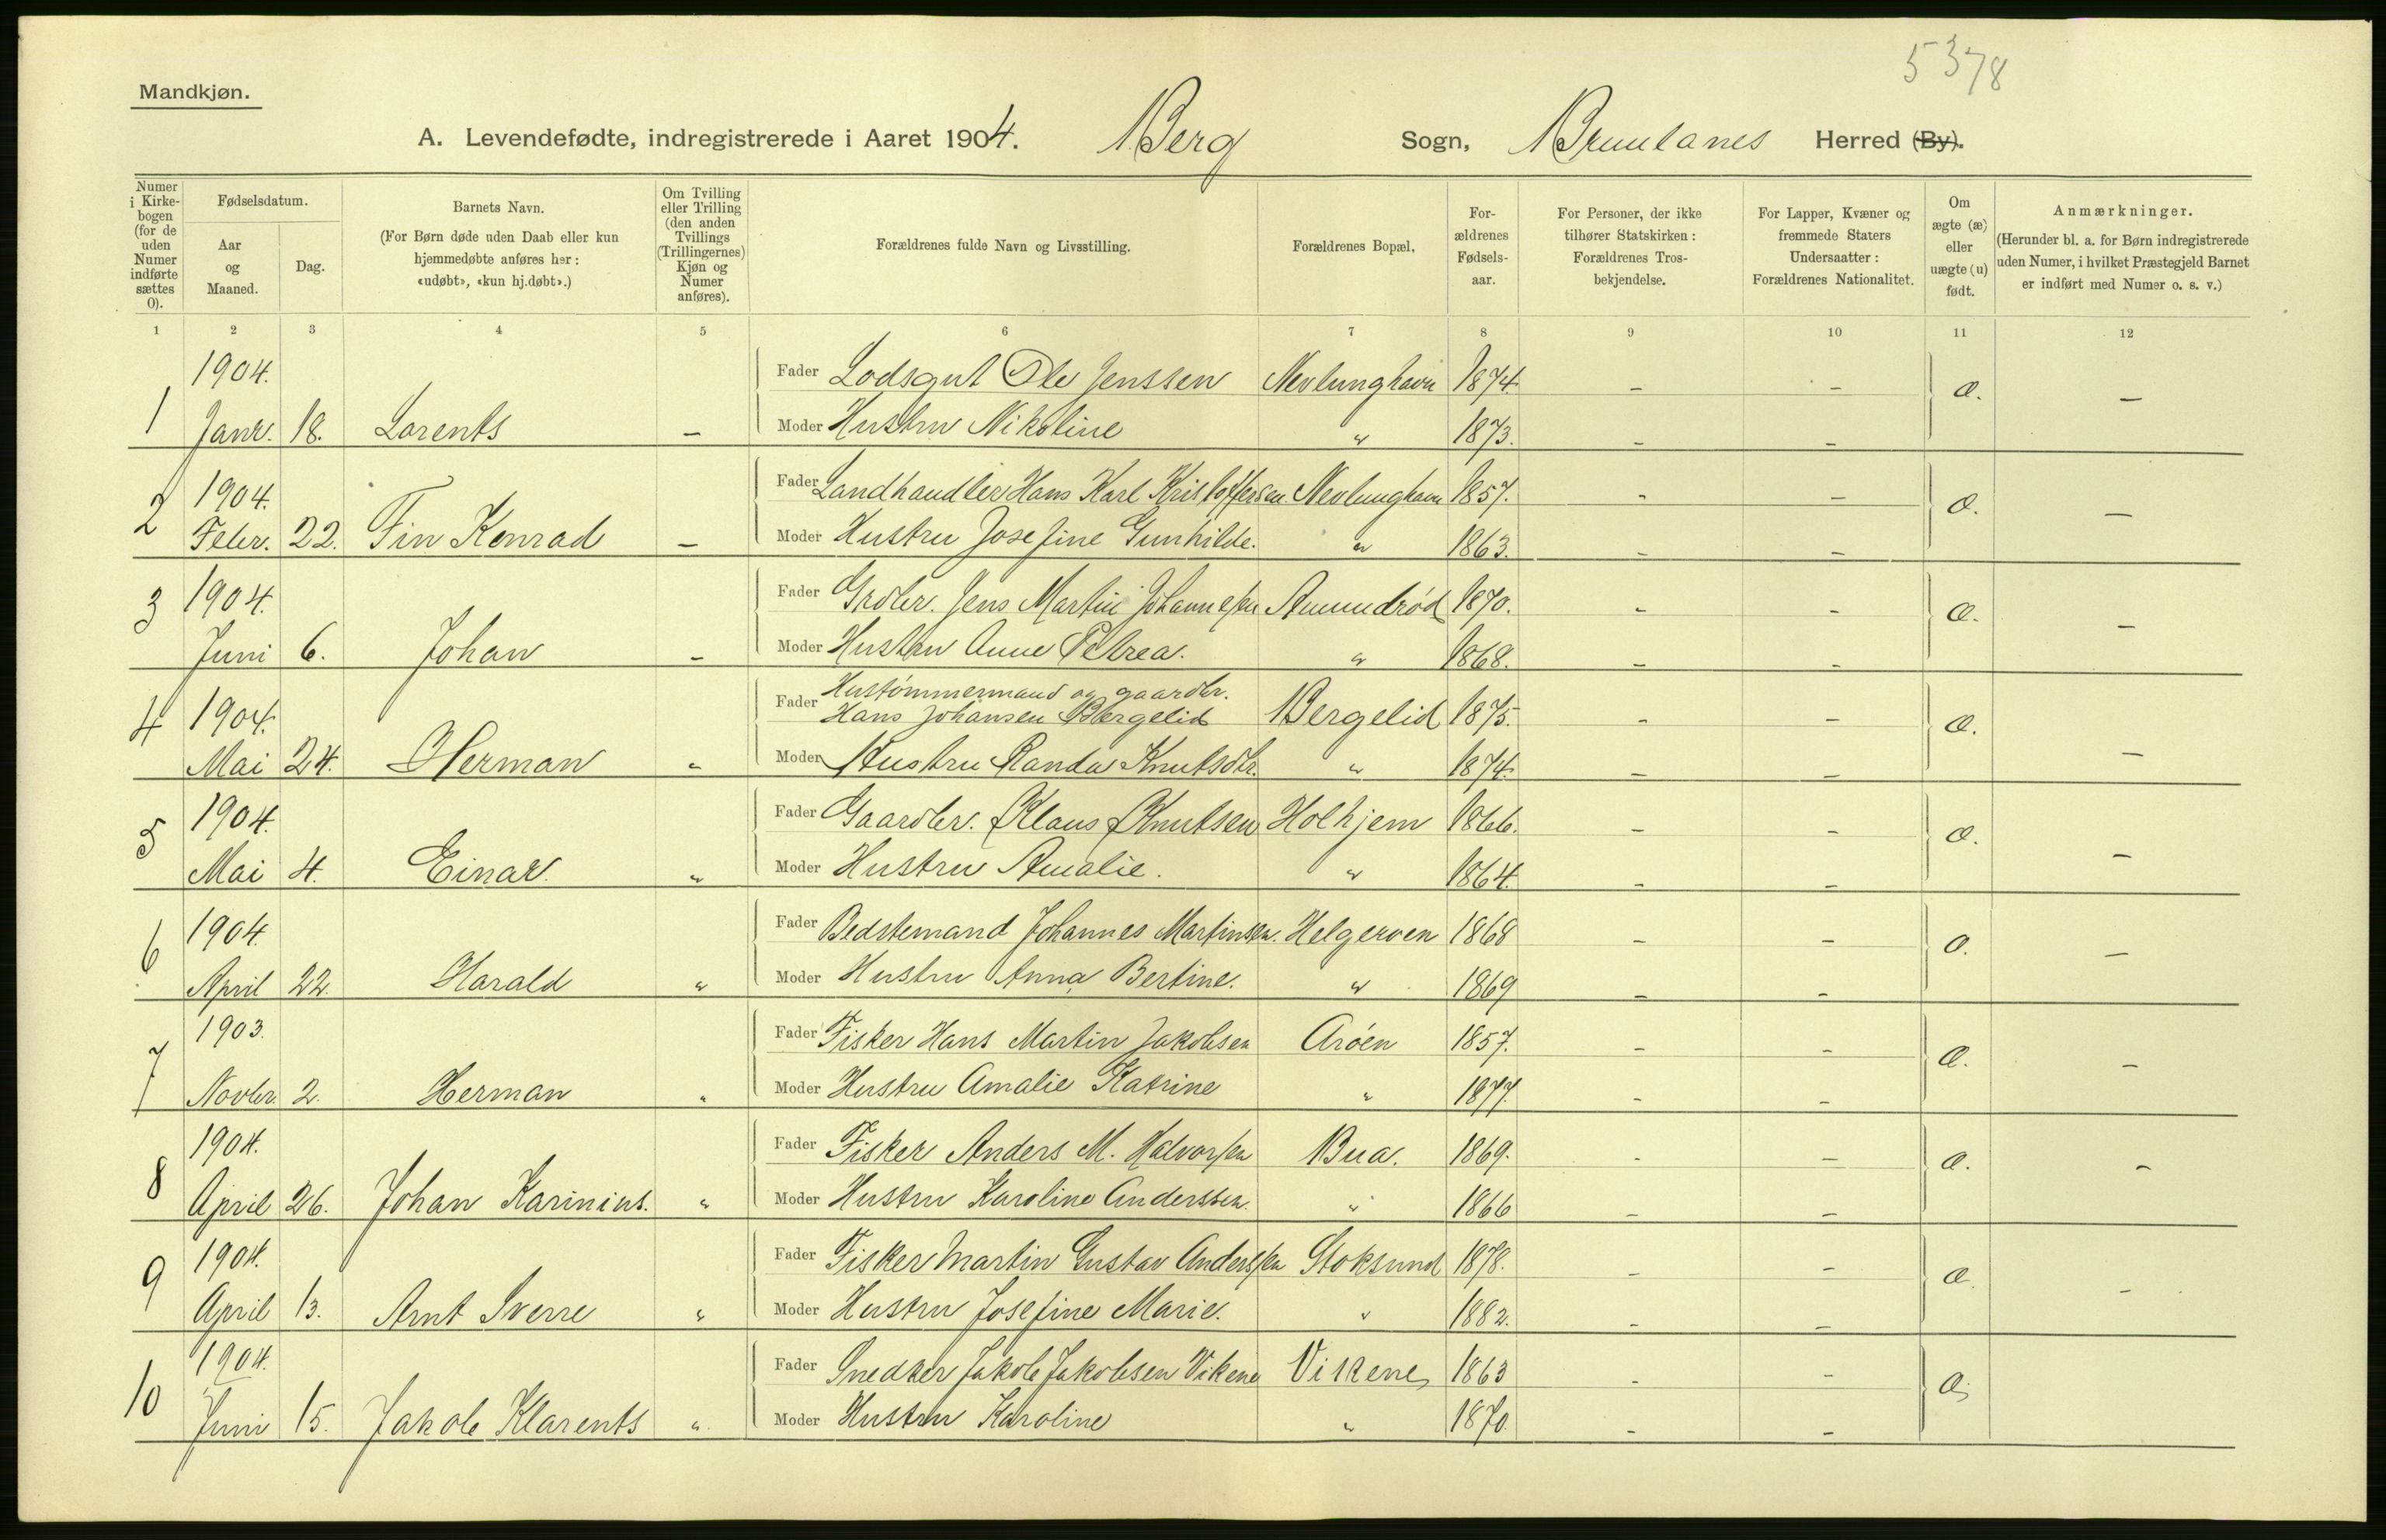 5378
Mandkjøn.
A. Levendefødte, indregistrerede i Aaret 1904. Berg Sogn, Brunlanes Herred (By).
Numer i Kirkebogen (for de uden Numer indførte sættes 0).
Fødselsdatum.
Aar og Maaned.
Dag.
Barnets Navn.
(For Børn døde uden Daab eller kun hjemmedøbte anføres her: «udøbt», «kun hj.døbt».)
Om Tvilling eller Trilling (den anden Tvillings (Trillingernes) Kjøn og Numer anføres).
Forældrenes fulde Navn og Livsstilling.
Forældrenes Bopæl.
Forældrenes Fødselsaar.
For Personer, der ikke tilhører Statskirken: Forældrenes Trosbekjendelse.
For Lapper, Kvæner og fremmede Staters Undersaatter: Forældrenes Nationalitet.
Om ægte (æ) eller uægte (u) født.
Anmærkninger.
(Herunder bl. a. for Børn indregistrerede uden Numer, i hvilket Præstegjeld Barnet er indført med Numer o. s. v.)
1 2 3 4 5 6 7 8 9 10 11 12
1904. Fader Lodsgut Ole Jenssen Nevlunghavn 1874. – – æ. –
1 Janr. 18. Lorents – Moder Hustru Nikoline " 1873. – –
1904. Fader Landhandler Hans Karl Kristoffersen Nevlunghavn 1857. - – æ. –
2 Febr. 22. Fin Konrad – Moder Hustru Josefine Gunhilde. " 1863. – –
1904. Fader Grdbr. Jens Martin Johannessen Amundrød 1870. - – æ. –
3 Juni 6. Johan – Moder Hustru Anne Petrea. " 1868. – –
Hustømmermand og gaardbr.
1904. Fader Hans Johansen Bergelid Bergelid 1875. - – æ. –
4 Mai 24. Herman - Moder Hustru Randa Knutsdtr. " 1874. – –
1904. Fader Gaardbr. Klaus Knutsen Holhjem 1866. – – æ. –
5 Mai 4. Einar. " Moder Hustru Amalie. " 1864. – –
1904. Fader Bedstemand Johannes Martinsen. Helgeroen 1868 – – æ. –
6 April 22. Harald " Moder Hustru Anna Bertine. " 1869 – –
1903. Fader Fisker Hans Martin Jakobsen Arøen 1857. – – æ. –
7 Novbr. 2. Herman " Moder Hustru Amalie Katrine " 1877. – –
1904. Fader Fisker Anders M. Halvorsen Bua. 1869. - – æ. –
8 April 26. Johan Karinius. " Moder Hustru Karoline Anderssen. " 1866 – –
1904. Fader Fisker Martin Gustav Anderssen Stoksund 1878. – – æ. -
9 April 13. Arnt Sverre " Moder Hustru Josefine Marie. " 1882. – –
1904. Fader Snedker Jakob Jakobsen Vikene Vikene 1863 - – æ.
10 Juni 15. Jakob Klarents " Moder Hustru Karoline " 1870. – –